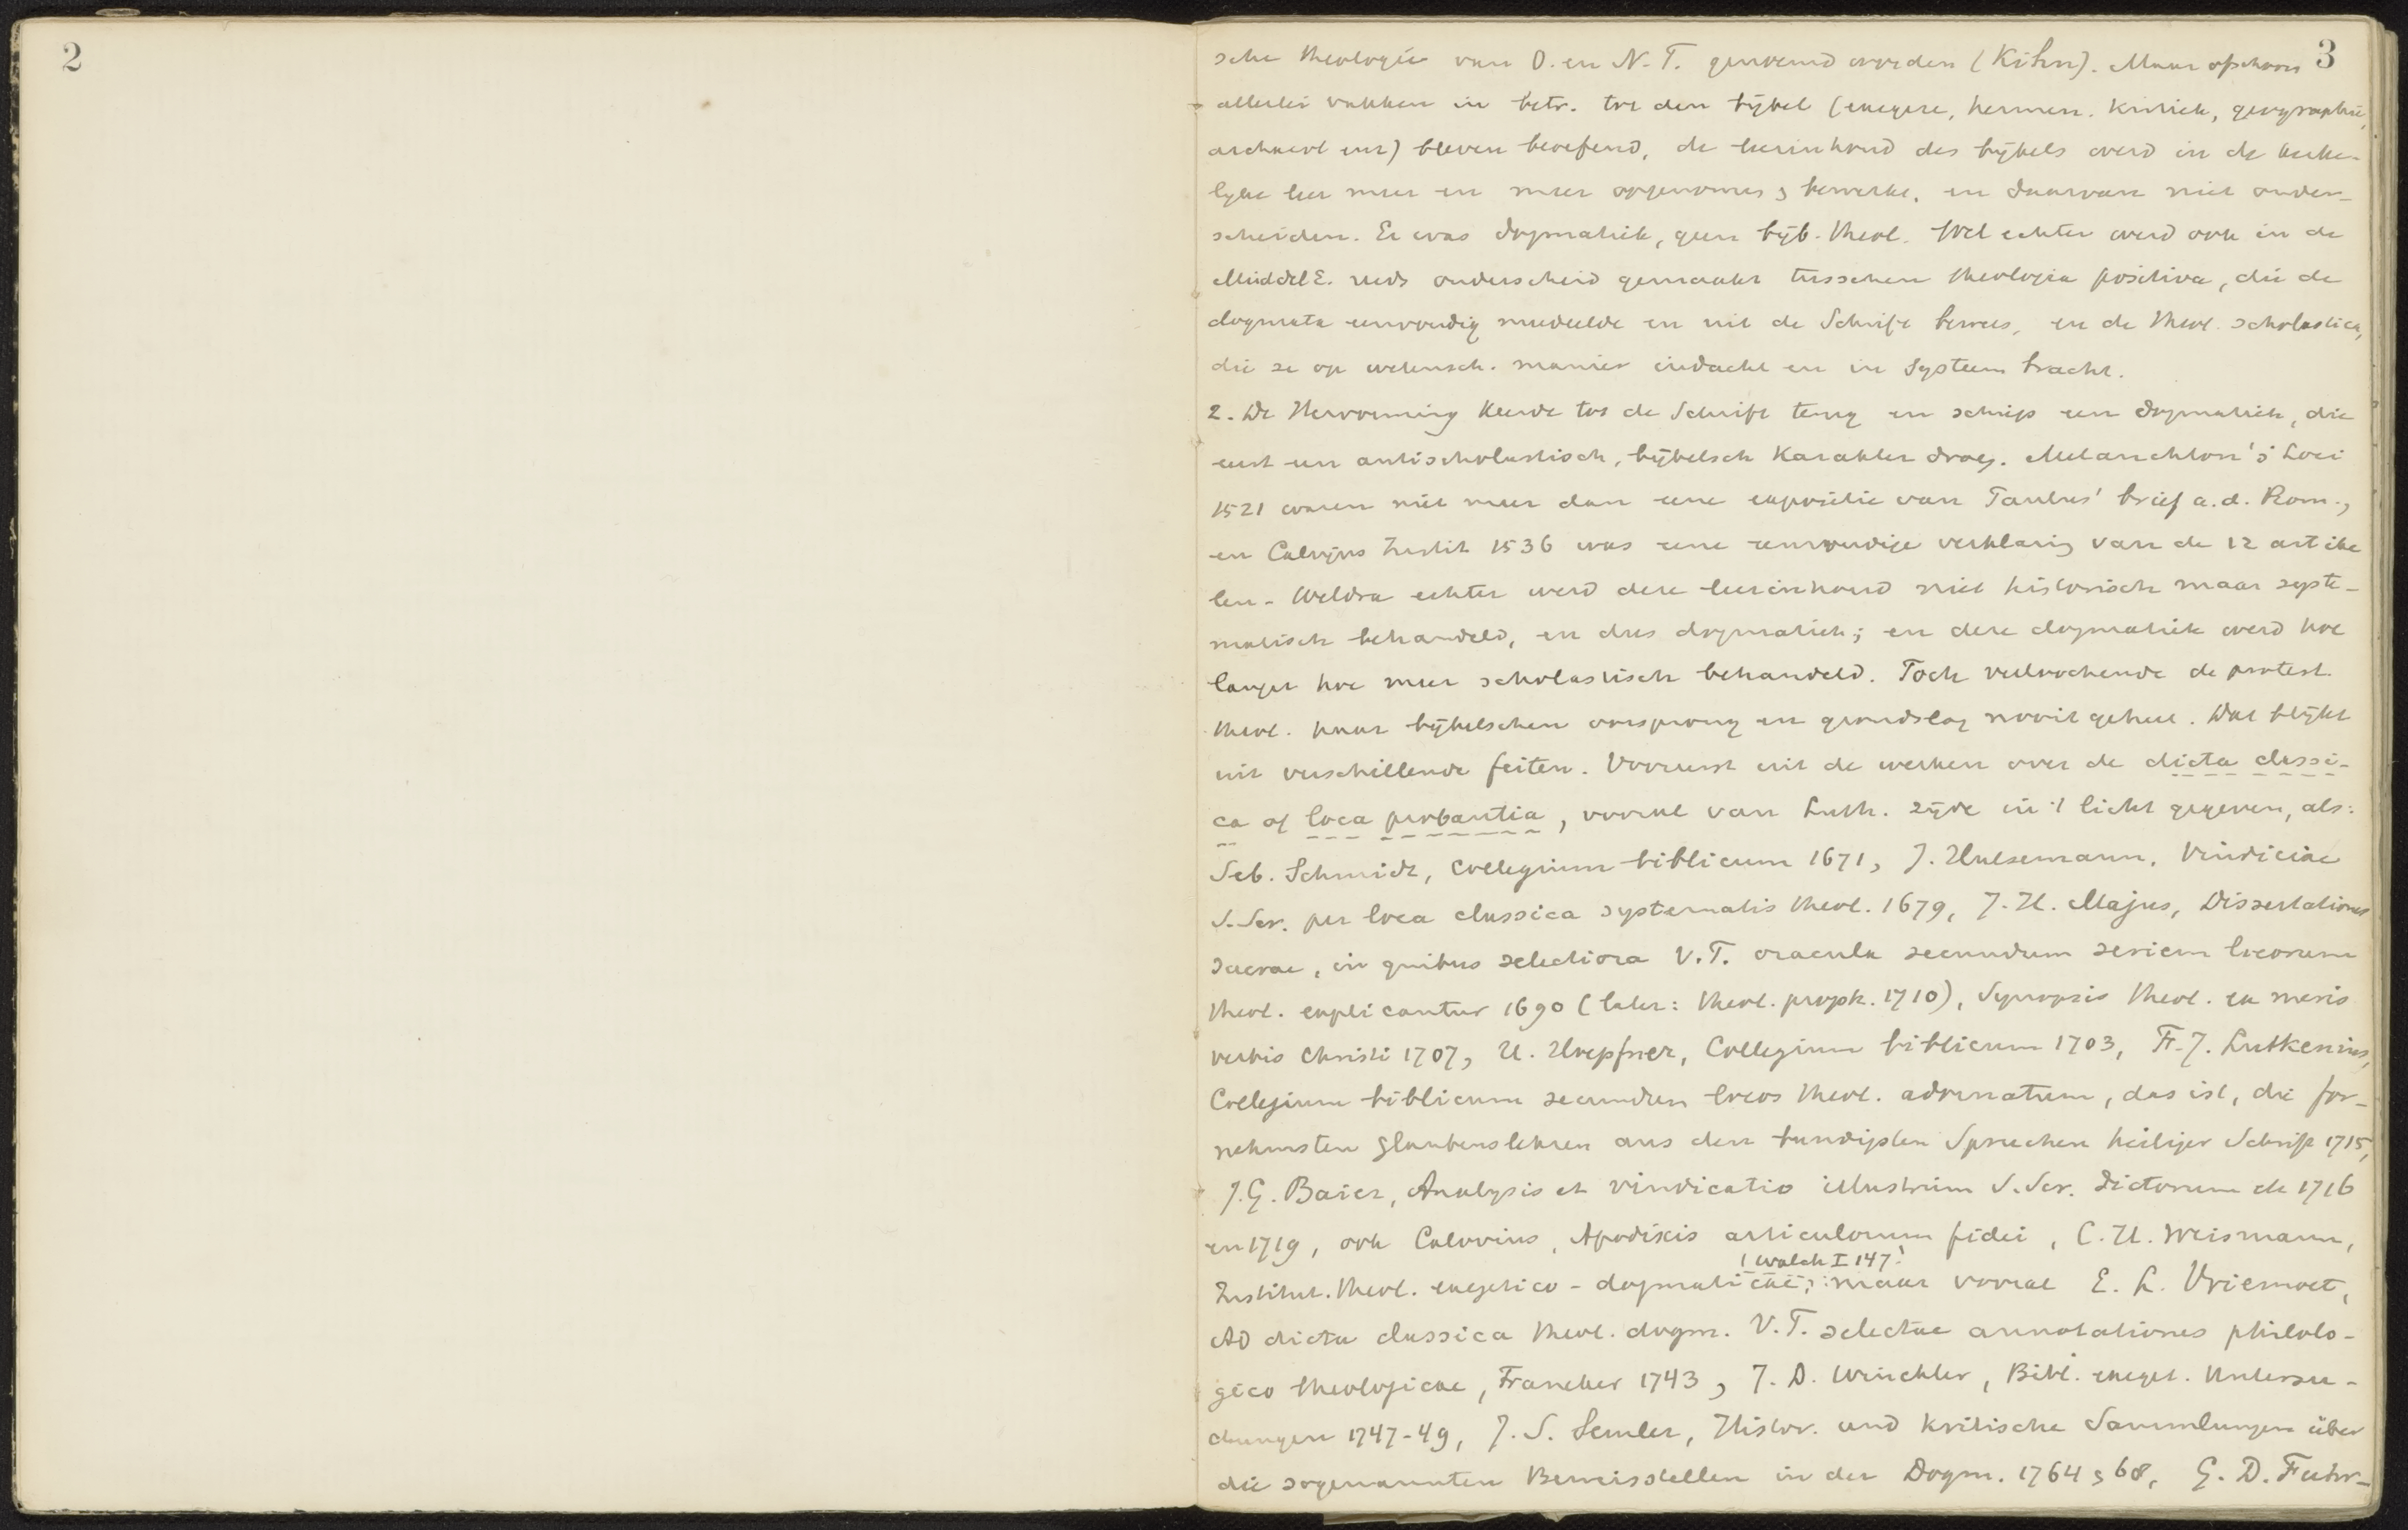 2
3
sche theologie van O. en N. T. genoemd worden (Kihn). Maar ofschoon
allerlei vakken in betr. tot den bijbel (exegese, hermen. kritiek, geographie,
archaeol enz) bleven beoefend, de leerinhoud des bijbels werd in de kerke-
lijke leer meer en meer opgenomen & bewerkt, en daarvan niet onder-
scheiden. Er was dogmatiek, geen bijb. theol. Wel echter werd ook in de
MiddelE. reeds onderscheid gemaakt tusschen theologia positiva, die de
dogmata eenvoudig mededeelde en uit de Schrift bewees, en de theol. scholastica,
die ze op wetensch. manier indacht en in systeem bracht.
2. De Hervorming keerde tot de Schrift terug en schiep een dogmatiek, die
eerst een antischolastisch, bijbelsch karakter droeg. Melanchton's Loci
1521 waren niet meer dan eene expositie van Paulus' brief a.d. Rom.,
en Calvijns Instit 1536 was eene eenvoudige verklaring van de 12 artike
len. Weldra echter werd deze leerinhoud niet historisch maar syste-
matisch behandeld, en dus dogmatiek; en deze dogmatiek werd hoe
langer hoe meer scholastisch behandeld. Toch verloochende de protest.
theol. haar bijbelschen oorsprong en grondslag nooit geheel. Dat blijkt
uit verschillende feiten. Vooreerst uit de werken over de dicta classi-
ca of loca probantia, vooral van Luth. zijde in 't licht gegeven, als:
Seb. Schmidt, Collegium biblicum 1671, J. Hulsemann, Vindiciae
S. Scr. per loca classica systematis theol. 1679, J. H. Majus, Dissertationes
sacrae, in quibus selectiora V. T. oracula secundum seriem locorum
theol. explicantur 1690 (later: theol. proph. 1710), Synopsis theol. ex meris
verbis Christi 1707, H. Hoepfner, Collegium biblicum 1703, Fr. J. Lutkenius,
Collegium biblicum secundum locos theol. adornatum, das ist, die for-
nehmsten Glaubenslehren aus den bundigsten Spruchen heiliger Schrift 1715,
J. G. Baier, Analysis et vindicatio illustrium S. Scr. dictorum de 1716
en 1719, ook Calovius, Apodixis articulorum fidei, C. H. Weismann,
(Walch I 147)
Institut. theol. exegetico-dogmaticae; maar vooral E. L. Vriemoet,
Ad dicta classica theol. dogm. V. T. selectae annotationes philolo-
gico theologicae, Franeker 1743, J. D. Winckler, Bibl. exeget. Untersu-
chungen 1747-49, J. S. Semler, Histor. und kritische Sammlungen über
die sogenannten Beweisstellen in der Dogm. 1764 & 68, G. D. Fuhr-